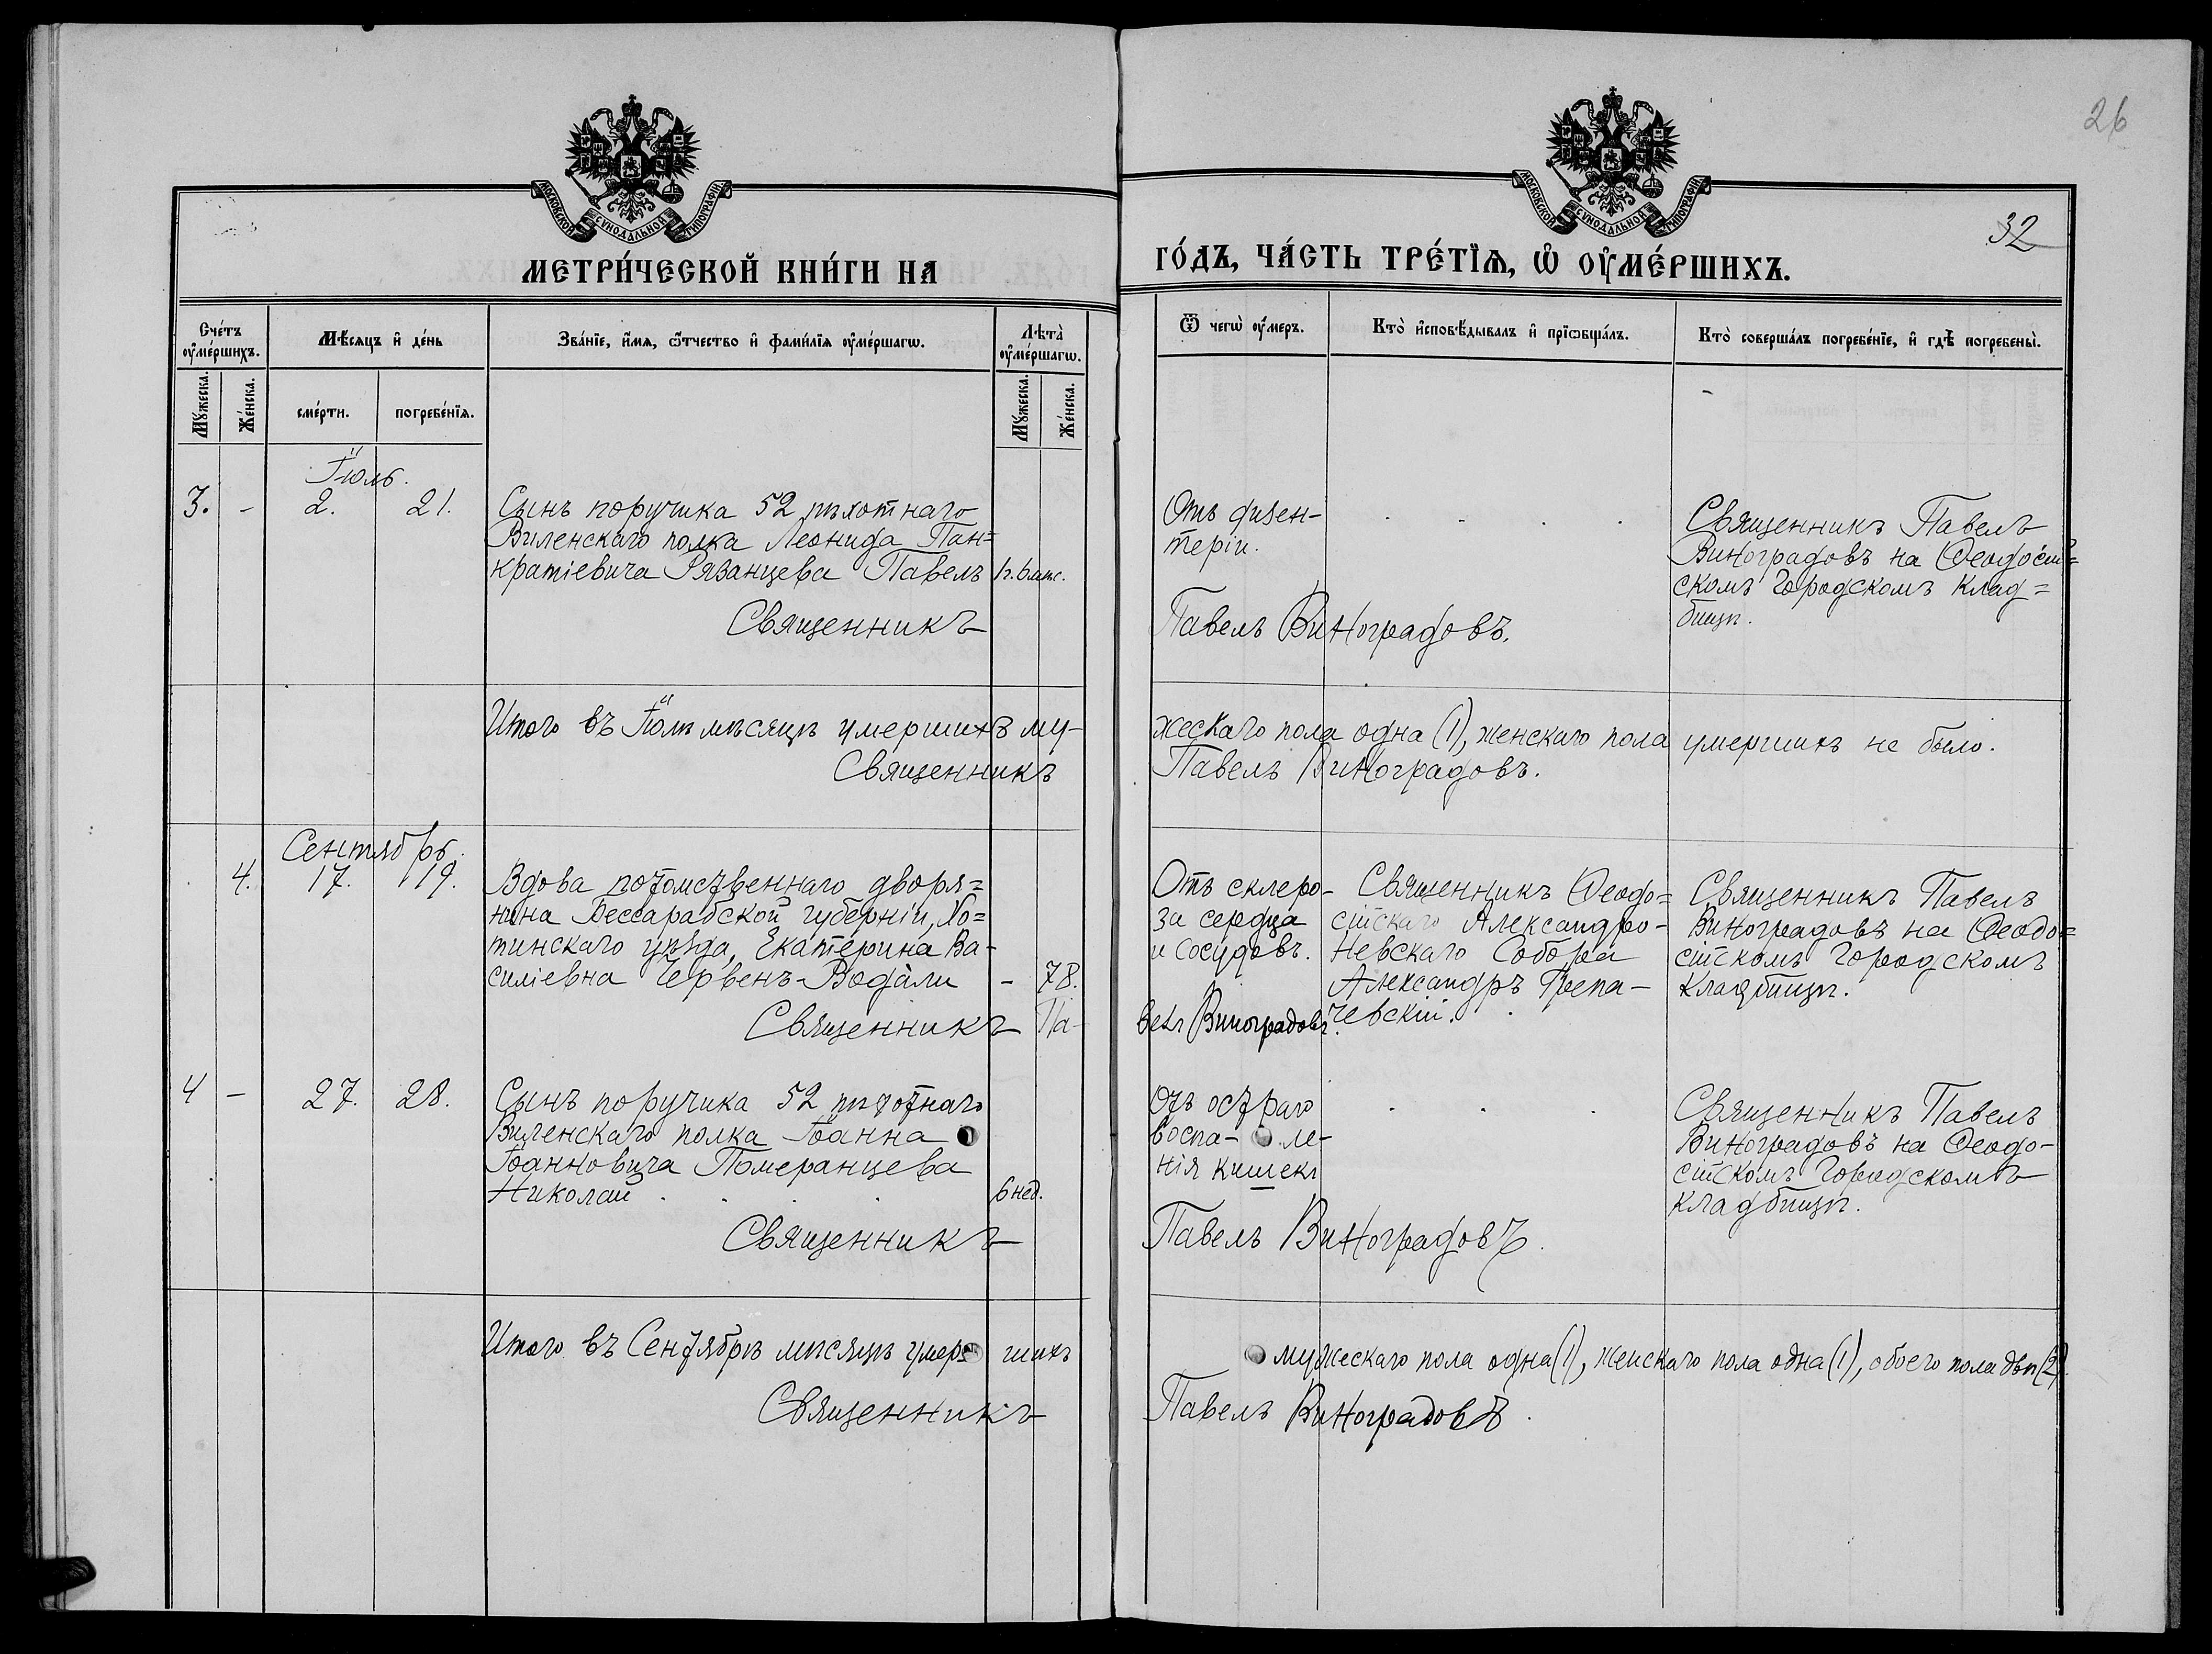 26
32
МОСКОВСКОЙ СѴНОДАЛЬНОЙ ТИПОГРАФІИ
МОСКОВСКОЙ СѴНОДАЛЬНОЙ ТИПОГРАФІИ
МЕТРИ́ЧЕСКОЙ КНИ́ГИ НА
ГО́ДЪ, ЧА́СТЬ ТРЕ́ТЇѦ, Ѡ҆ ОУ҆МЕ́РШИХЪ.
Сче́тъ оу҆ме́ршихъ.
Мꙋ́жеска.
Же́нска.
Мѣ́сѧцъ и҆ де́нь
сме́рти.
погребе́нїѧ.
Зва́нїе, и҆́мѧ, ѻ҆́тчество и҆ фами́лїѧ оу҆ме́ршагѡ.
Лѣ́та оу҆ме́ршагѡ.
Мꙋ́жеска.
Же́нска.
Ѿ чегѡ̀ оу҆́меръ.
Кто̀ и҆сповѣ́дывалъ и҆ прїѡбща́лъ.
Кто̀ соверша́лъ погребе́нїе, и҆ гдѣ̀ погребены̀.
Іюль.
3. - 2. 21.
Сынъ поручика 52 пѣхотнаго
Виленскаго полка Леонида Пан=
кратіевича Рязанцева Павелъ
Священникъ
Отъ дизен-
теріи.
Павелъ Виноградовъ.
Священникъ Павелъ
Виноградовъ на Ѳеодосій=
скомъ Городскомъ клад=
бищѣ.
Итого въ Іюлѣ мѣсяцѣ умершихъ му-
жескаго пола одна (1), женскаго пола умершихъ не было.
Священникъ
Павелъ Виноградовъ.
Сентябрь.
4. 17. 19.
Вдова потомственнаго дворя=
нина Бессарабской губерніи, Хо=
тинскаго уѣзда, Екатерина Ва-
силіевна Червенъ-Водали - 78.
Священникъ Па-
велъ Виноградовъ.
Отъ склеро-
за сердца
и сосудовъ.
Священникъ Ѳеодо=
сійскаго Александро-
Невскаго Собора
Александръ
чевскій.
Священникъ Павелъ
Виноградовъ на Ѳеодо=
сійскомъ Городскомъ
кладбищѣ.
4 - 27. 28.
Сынъ поручика 52 пѣхотнаго
Виленскаго полка Іоанна
Іоанновича Померанцева
Николай . . . 6 нед.
Священникъ
Отъ остраго
воспа-ле-
нія кишекъ
Павелъ Виноградовъ.
Священникъ Павелъ
Виноградовъ на Ѳеодо-
сійскомъ Городскомъ
кладбищѣ.
Итого въ Сентябрѣ мѣсяцѣ умер шихъ
мужескаго пола одна (1), женскаго пола одна (1), обоего пола двѣ (2).
Священникъ
Павелъ Виноградовъ.